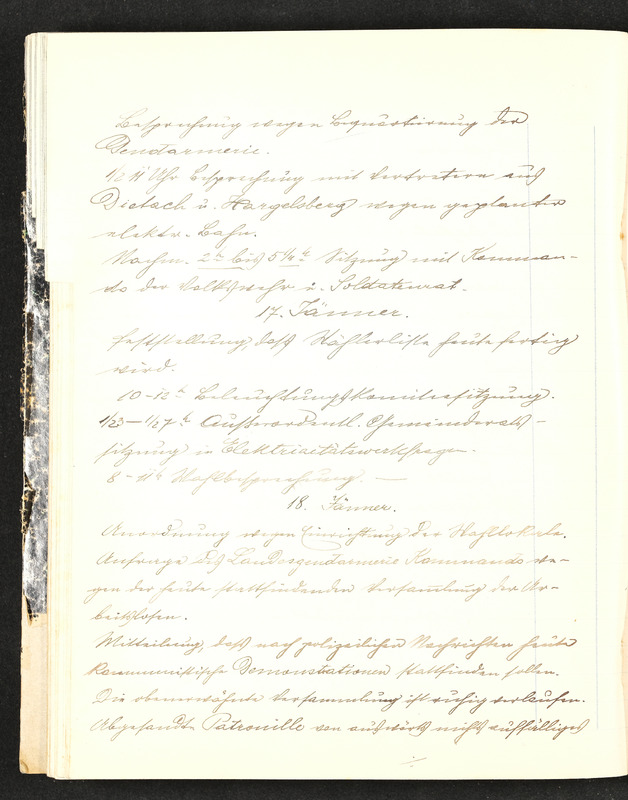 Besprechung wegen Bequartierung der
Gendarmerie.
1/2 11 Uhr Besprechung mit Vertretern aus
Dietach u. Hargelsberg wegen geplanter
elektr. Bahn.
Nachm. 2 h bis 5 1/2 h Sitzung mit Komman-
do der Volkswehr u. Soldatenrat.
17. Jänner.
Feststellung, daß Wählerliste heute fertig
wird.
10-12 h Beleuchtungskomiteesitzung.
1/23-1/27 h Außerordentl. Gemeinderats-
sitzung in Elektricitätswerksfrage.
8-11 h Wahlbesprechung. —
18. Jänner.
Anordnung wegen Einrichtung der Wahllokale.
Anfrage des Landesgendarmerie Kommando we-
gen der heute stattfindenden Versamlung der Ar-
beitslosen.
Mitteilung, daß nach polizeilichen Nachrichten heute
kommunistische Demonstrationen stattfinden sollen.
Die obenerwähnte Versammlung ist ruhig verlaufen.
Abgesandt Patrouille von auswärts nichts auffälliges